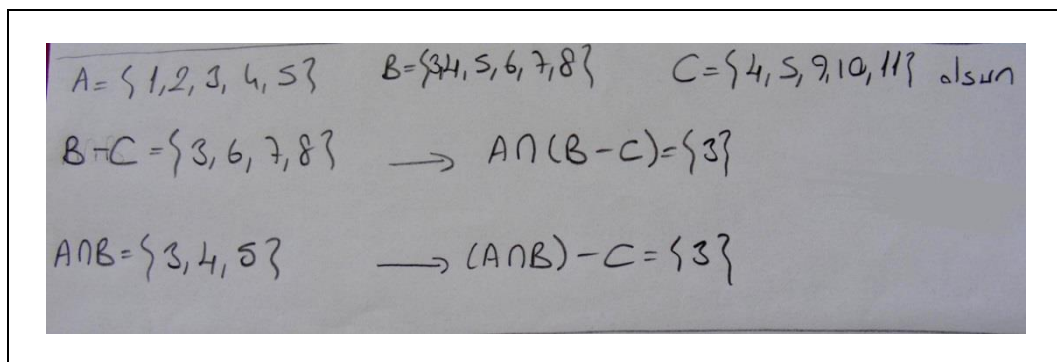 A={1,2,3,4,5} B={3,4,5,6,7,8} C={4,5,9,10,11} olsun
B-C={3,6,7,8} → A∩(B-C)={3}
A∩B={3,4,5} → (A∩B)-C={3}